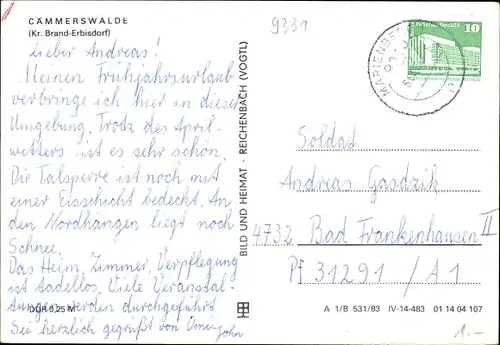 CÄMMERSWALDE
(Kr. Brand-Erbisdorf)
Lieber Andreas!
Meinen Frühjahrsurlaub
verbringe ich hier in dieser
Umgebung. Trotz des April-
wetters ist es sehr schön.
Die Talsperre ist noch mit
einer Eisschicht bedeckt. An
den Nordhängen liegt noch
Schnee.
Das Heim, Zimmer, Verpflegung
ist tadellos. Viele Veranstal-
tungen werden durchgeführt.
Sei herzlich gegrüßt von
DDR 0,25 M
BILD UND HEIMAT · REICHENBACH (VOGTL)
9331
10
MARIENBE
Soldat
Andreas Gasdzik
4732 Bad Frankenhausen II
Pf 31291 / A1
A 1/B 531/83 IV-14-483 01 14 04 107
1.-